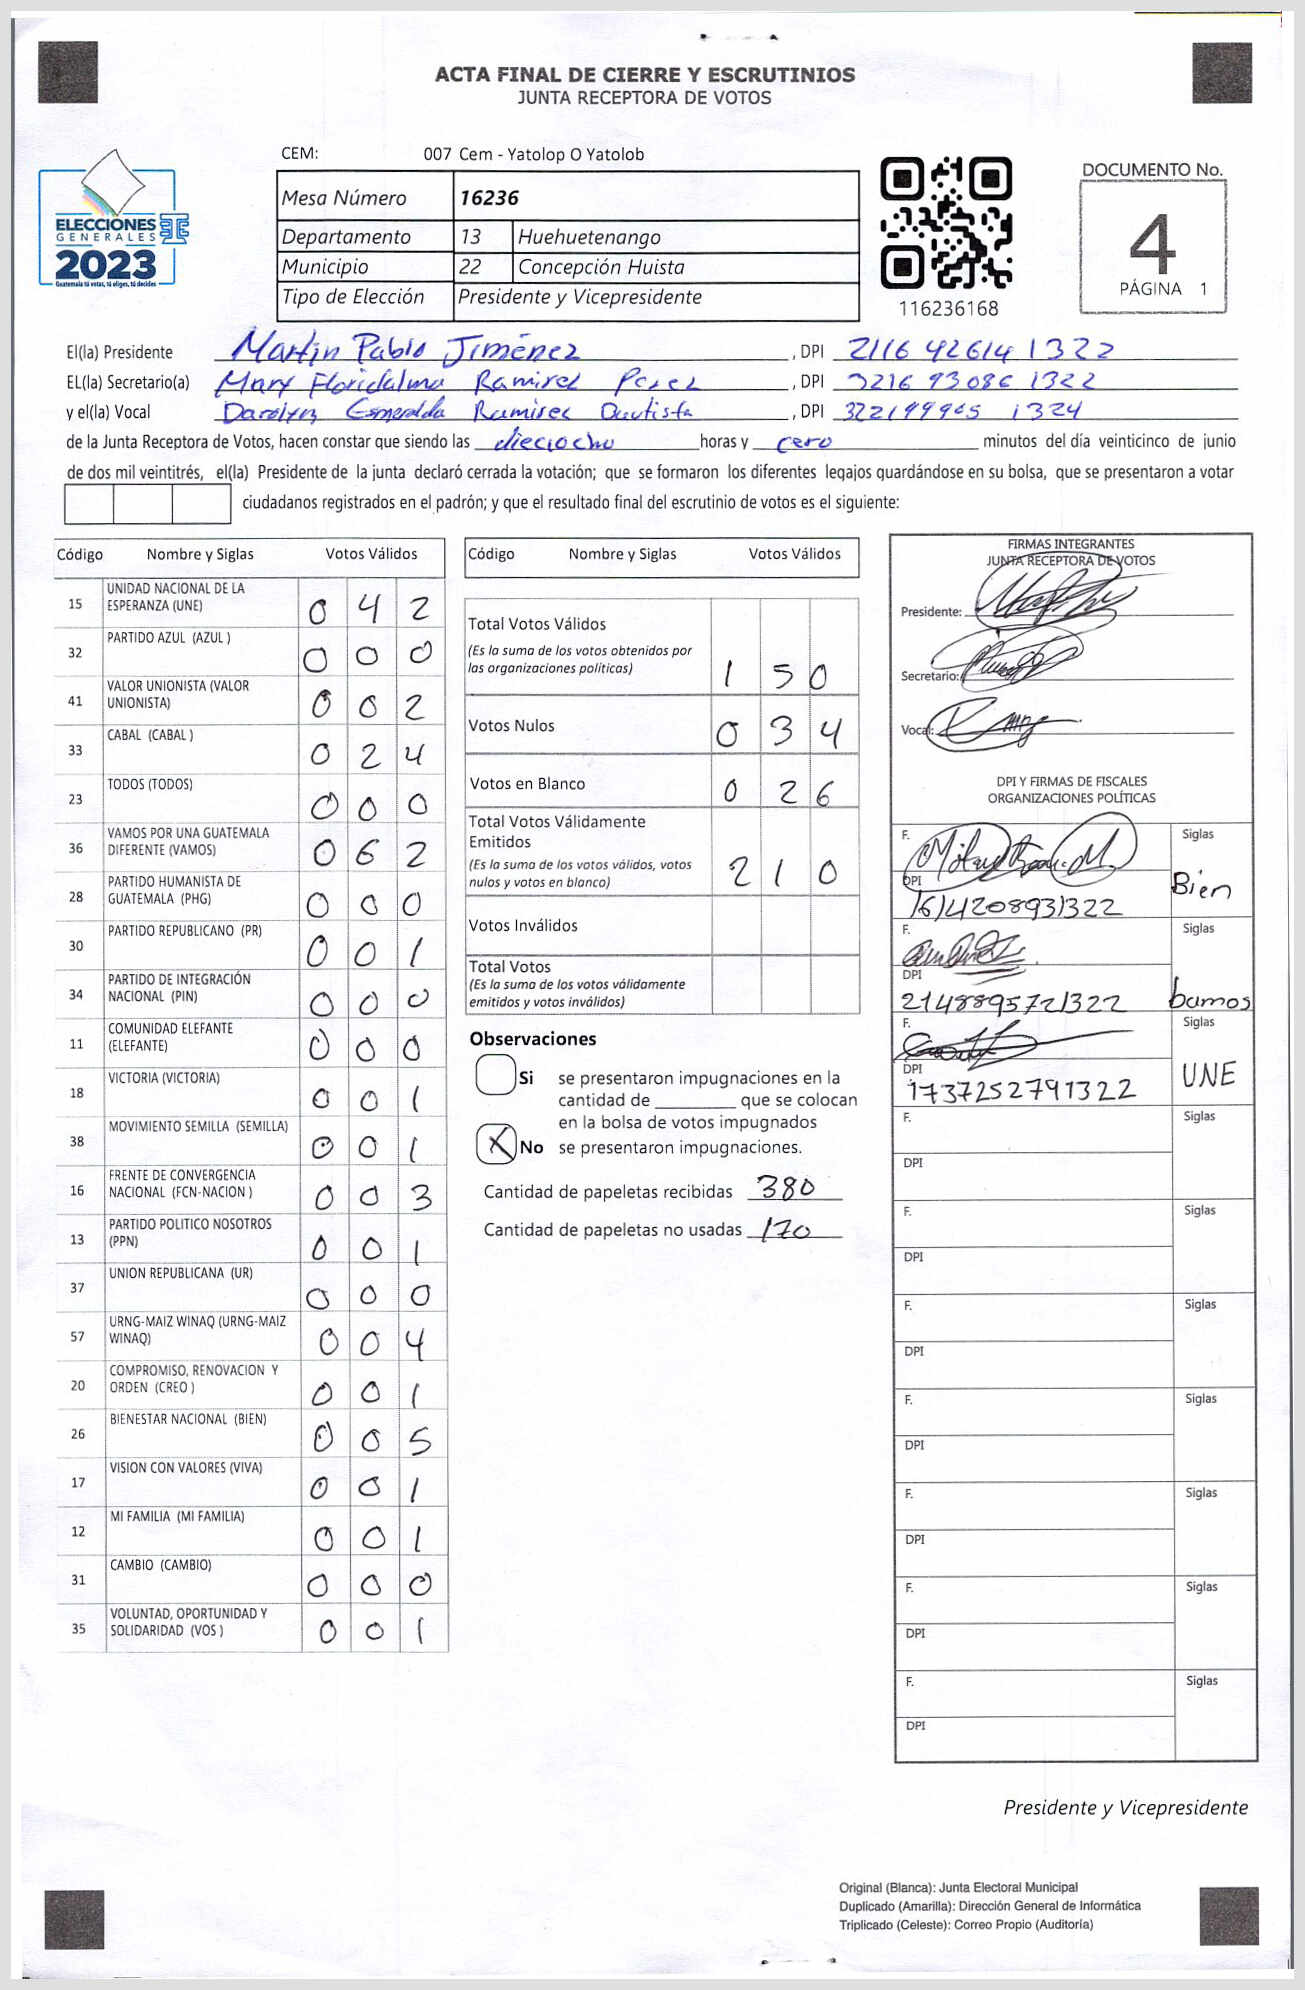 ACTA FINAL DE CIERRE Y ESCRUTINIOS
JUNTA RECEPTORA DE VOTOS
CEM: 007 Cem - Yatolop O Yatolob
ELECCIONES
GENERALES
2023
Guatemala tú votas, tú eliges, tú decides
Mesa Número 16236
Departamento 13 Huehuetenango
Municipio 22 Concepción Huista
Tipo de Elección Presidente y Vicepresidente
116236168
DOCUMENTO No.
4
PÁGINA 1
El(la) Presidente Martin Pablo Jiménez , DPI 2116 42614 1322
EL(la) Secretario(a) Mary Floridalma Ramirez Perez , DPI 3216 93086 1322
y el(la) Vocal Esmeralda Ramirez Bautista , DPI 1324
de la Junta Receptora de Votos, hacen constar que siendo las dieciocho horas y cero minutos del día veinticinco de junio
de dos mil veintitrés, el(la) Presidente de la junta declaró cerrada la votación; que se formaron los diferentes legajos guardándose en su bolsa, que se presentaron a votar
ciudadanos registrados en el padrón; y que el resultado final del escrutinio de votos es el siguiente:
Código Nombre y Siglas Votos Válidos
15 UNIDAD NACIONAL DE LA
ESPERANZA (UNE) 0 4 2
32 PARTIDO AZUL (AZUL ) 0 0 0
41 VALOR UNIONISTA (VALOR
UNIONISTA) 0 0 2
33 CABAL (CABAL ) 0 2 4
23 TODOS (TODOS) 0 0 0
36 VAMOS POR UNA GUATEMALA
DIFERENTE (VAMOS) 0 6 2
28 PARTIDO HUMANISTA DE
GUATEMALA (PHG) 0 0 0
30 PARTIDO REPUBLICANO (PR) 0 0 1
34 PARTIDO DE INTEGRACIÓN
NACIONAL (PIN) 0 0 0
11 COMUNIDAD ELEFANTE
(ELEFANTE) 0 0 0
18 VICTORIA (VICTORIA) 0 0 1
38 MOVIMIENTO SEMILLA (SEMILLA) 0 0 1
16 FRENTE DE CONVERGENCIA
NACIONAL (FCN-NACION ) 0 0 3
13 PARTIDO POLITICO NOSOTROS
(PPN) 0 0 1
37 UNION REPUBLICANA (UR) 0 0 0
57 URNG-MAIZ WINAQ (URNG-MAIZ
WINAQ) 0 0 4
20 COMPROMISO, RENOVACION Y
ORDEN (CREO ) 0 0 1
26 BIENESTAR NACIONAL (BIEN) 0 0 5
17 VISION CON VALORES (VIVA) 0 0 1
12 MI FAMILIA (MI FAMILIA) 0 0 1
31 CAMBIO (CAMBIO) 0 0 0
35 VOLUNTAD, OPORTUNIDAD Y
SOLIDARIDAD (VOS ) 0 0 1
Código Nombre y Siglas Votos Válidos
Total Votos Válidos
(Es la suma de los votos obtenidos por
las organizaciones políticas) 1 5 0
Votos Nulos 0 3 4
Votos en Blanco 0 2 6
Total Votos Válidamente
Emitidos
(Es la suma de los votos válidos, votos
nulos y votos en blanco) 2 1 0
Votos Inválidos
Total Votos
(Es la suma de los votos válidamente
emitidos y votos inválidos)
Observaciones
Si se presentaron impugnaciones en la
cantidad de ________ que se colocan
en la bolsa de votos impugnados
X No se presentaron impugnaciones.
Cantidad de papeletas recibidas 380
Cantidad de papeletas no usadas 170
FIRMAS INTEGRANTES
JUNTA RECEPTORA DE VOTOS
Presidente:
Secretario:
Vocal:
DPI Y FIRMAS DE FISCALES
ORGANIZACIONES POLÍTICAS
F. Siglas
DPI Bien
1614208931322
F. Siglas
DPI
2148895721322 bamos
F. Siglas
DPI UNE
1737252791322
F. Siglas
DPI
F. Siglas
DPI
F. Siglas
DPI
F. Siglas
DPI
F. Siglas
DPI
F. Siglas
DPI
F. Siglas
DPI
Presidente y Vicepresidente
Original (Blanca): Junta Electoral Municipal
Duplicado (Amarilla): Dirección General de Informática
Triplicado (Celeste): Correo Propio (Auditoría)